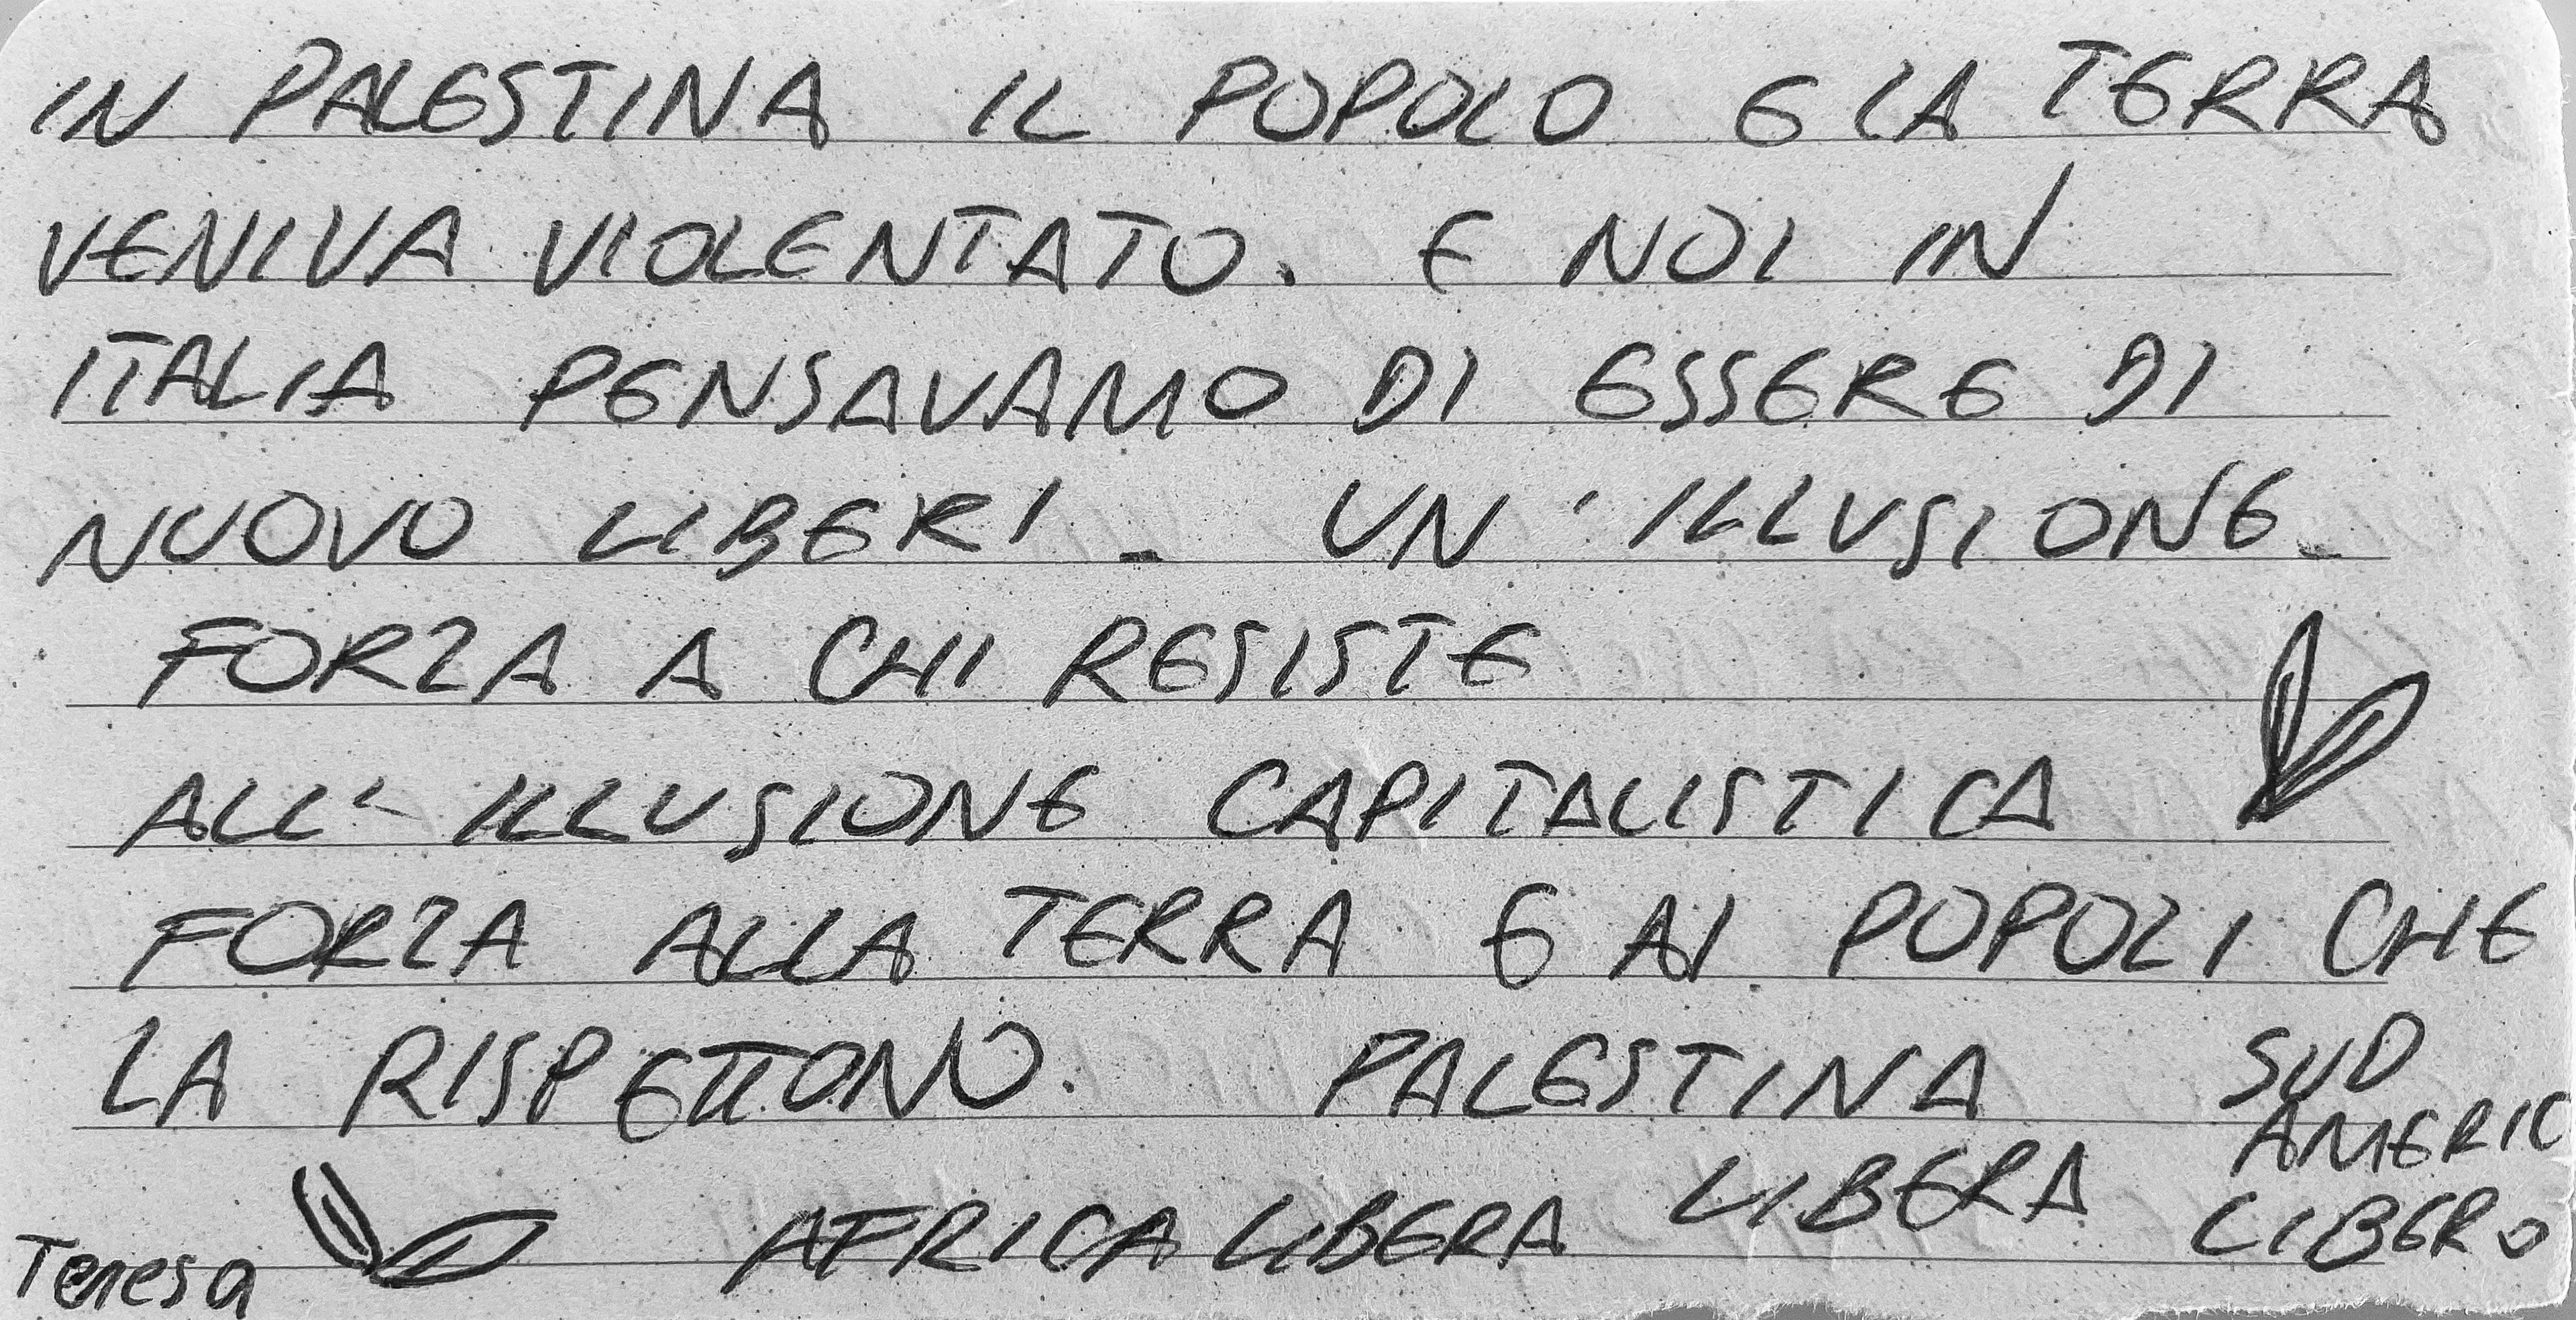 IN PALESTINA IL POPOLO E LA TERRA
VENIVA VIOLENTATO. E NOI IN
ITALIA PENSAVAMO DI ESSERE DI
NUOVO LIBERI. UN'ILLUSIONE.
FORZA A CHI RESISTE
ALL'ILLUSIONE CAPITALISTICA
FORZA ALLA TERRA E AI POPOLI CHE
LA RISPETTONO. PALESTINA
LIBERA
SUD
AMERIC
LIBERO
AFRICA LIBERA
Teresa